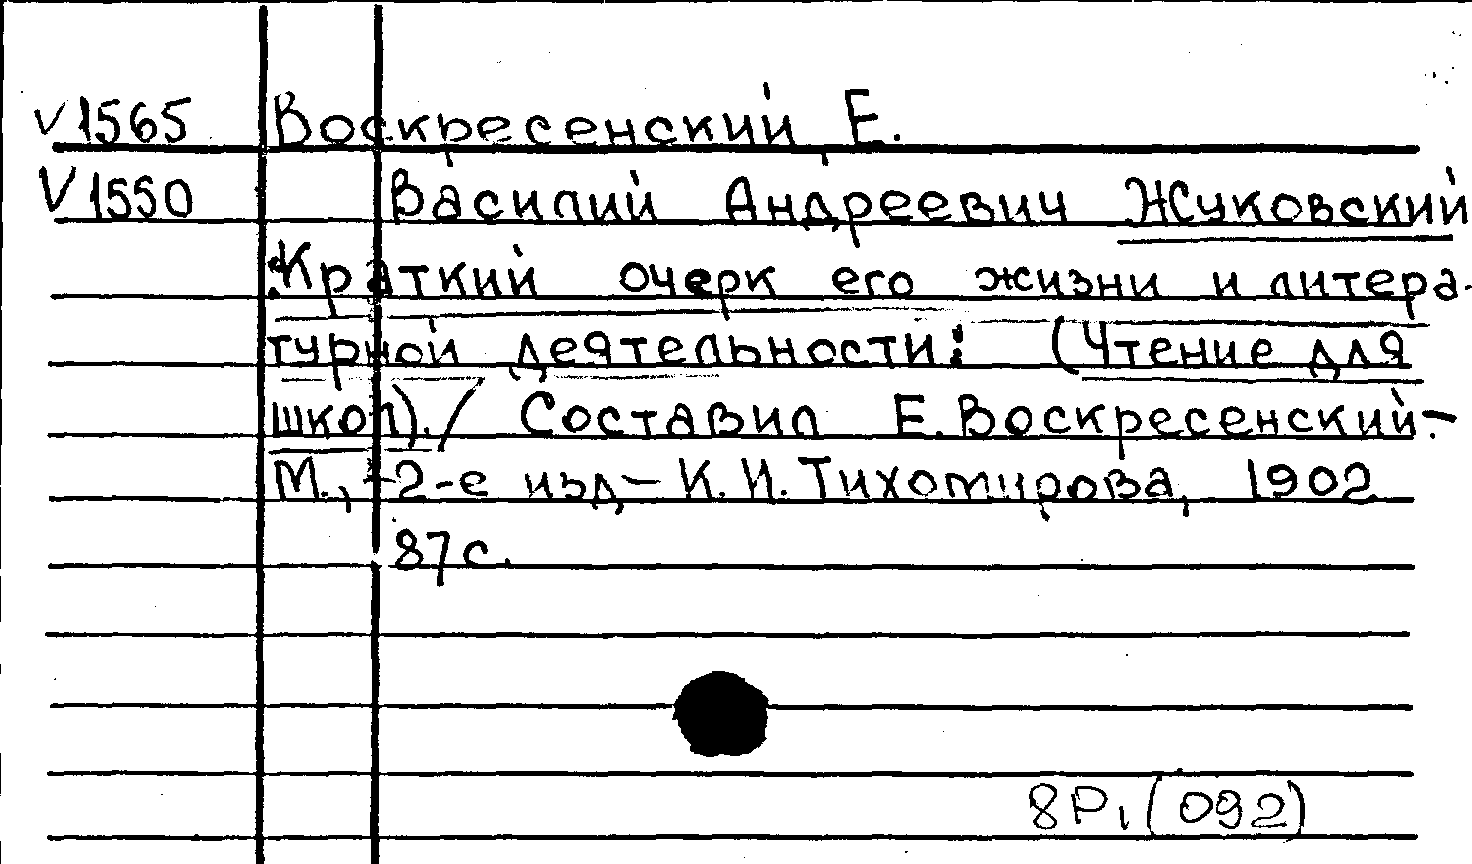 V1565 Воскресенский, Е.
V1550 Василий Андреевич Жуковский
:Краткий очерк его жизни и литера-
турной деятельности: (Чтение для
школ)./ Составил Е.Воскресенский.-
М., -2-е изд- К.И.Тихомирова, 1902
87с.
8Р1(092)